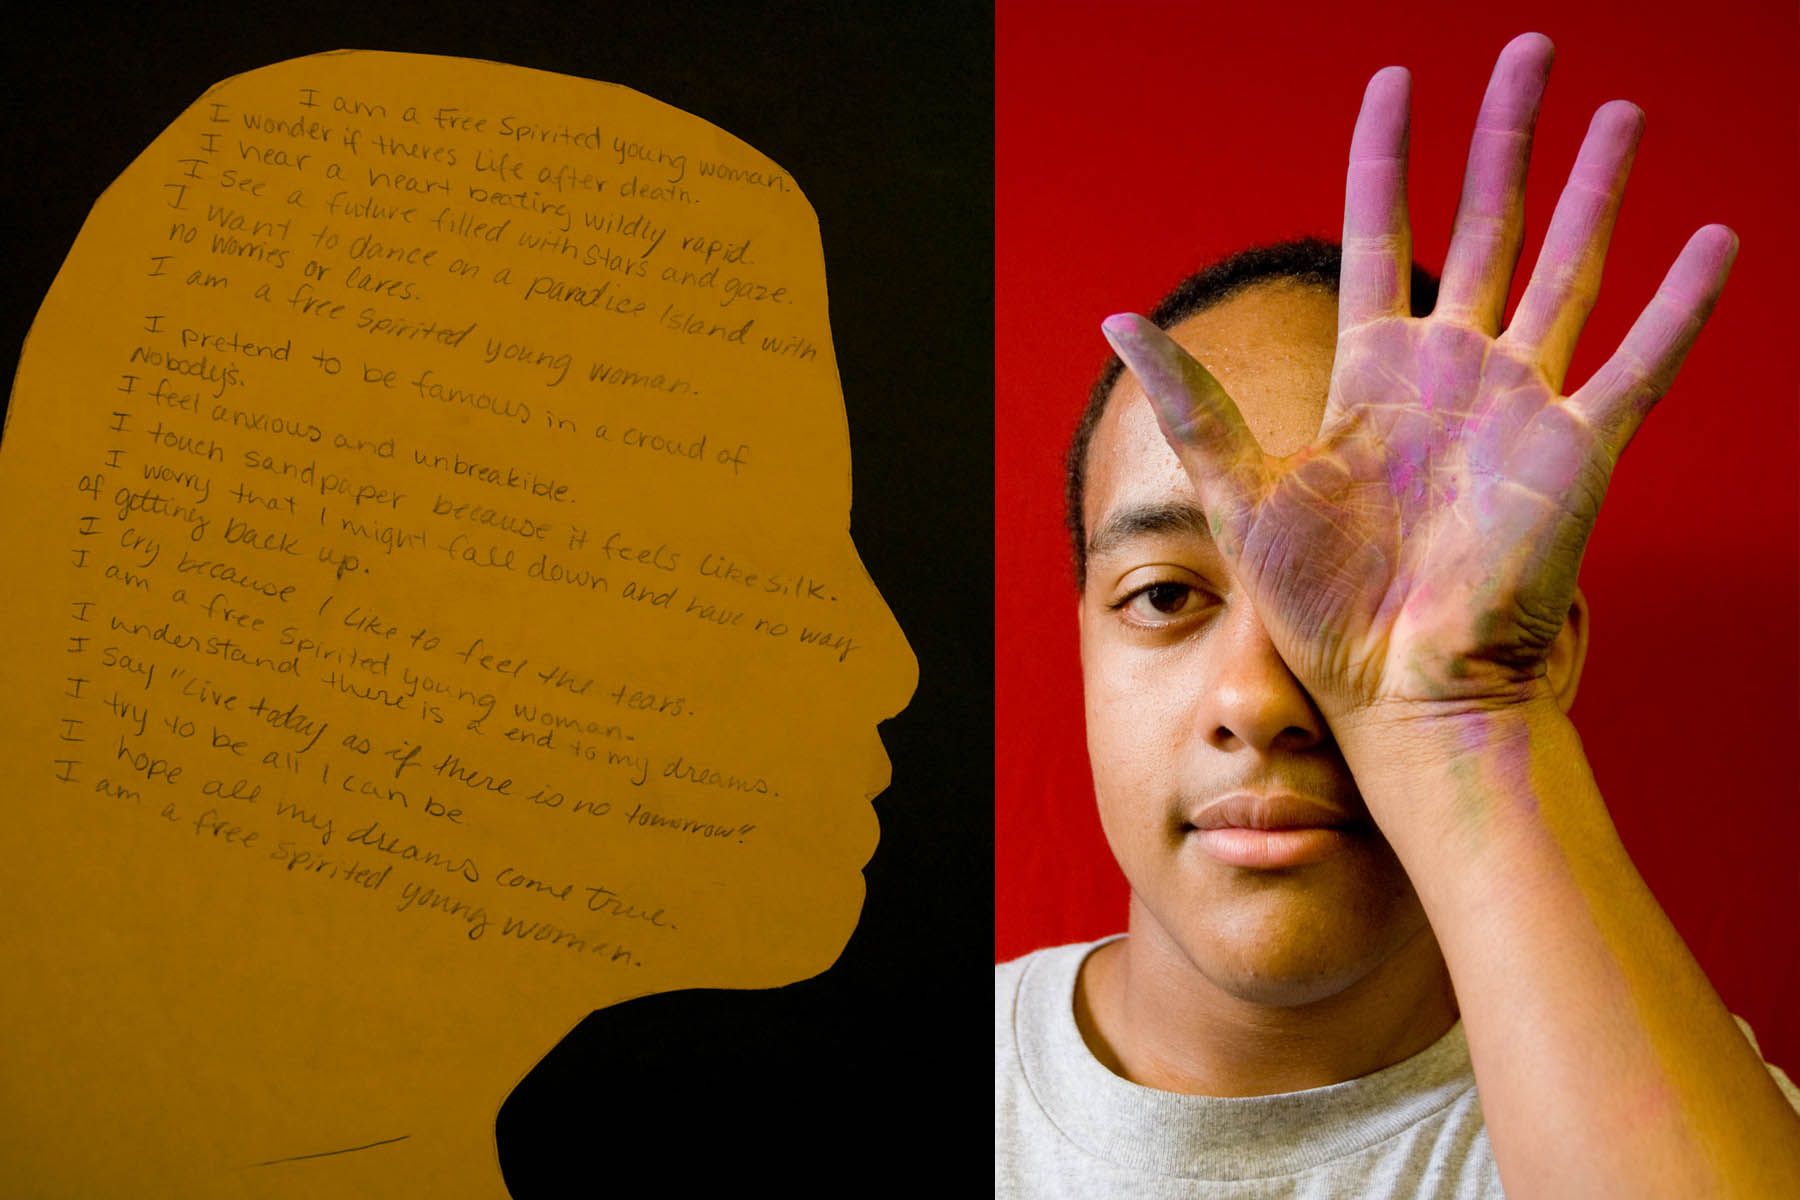 I am a Free Spirited young woman.
I wonder if theres Life after death.
I hear a heart beating wildly rapid.
I see a future filled with Stars and gaze.
I want to dance on a paradice Island with
no worries or cares.
I am a free Spirited young woman.
I pretend to be famous in a croud of
Nobody's.
I feel anxious and unbreakible.
I touch sandpaper because it feels Like silk.
I worry that I might fall down and have no way
of getting back up.
I cry because I Like to feel the tears.
I am a free spirited young woman.
I understand there is a end to my dreams.
I say "Live today as if there is no tomorrow"
I try to be all I can be.
I hope all my dreams come true.
I am a free spirited young woman.